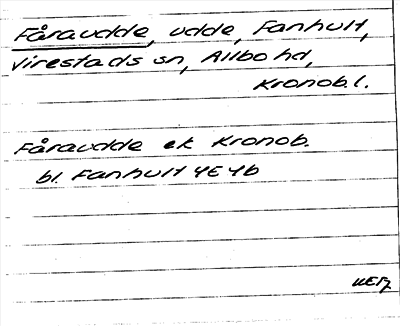 Fåraudde, udde, Fanhult,
Virestads sn, Allbo hd,
Kronob. l.
Fåraudde ek Kronob.
bl. Fanhult 4E4b